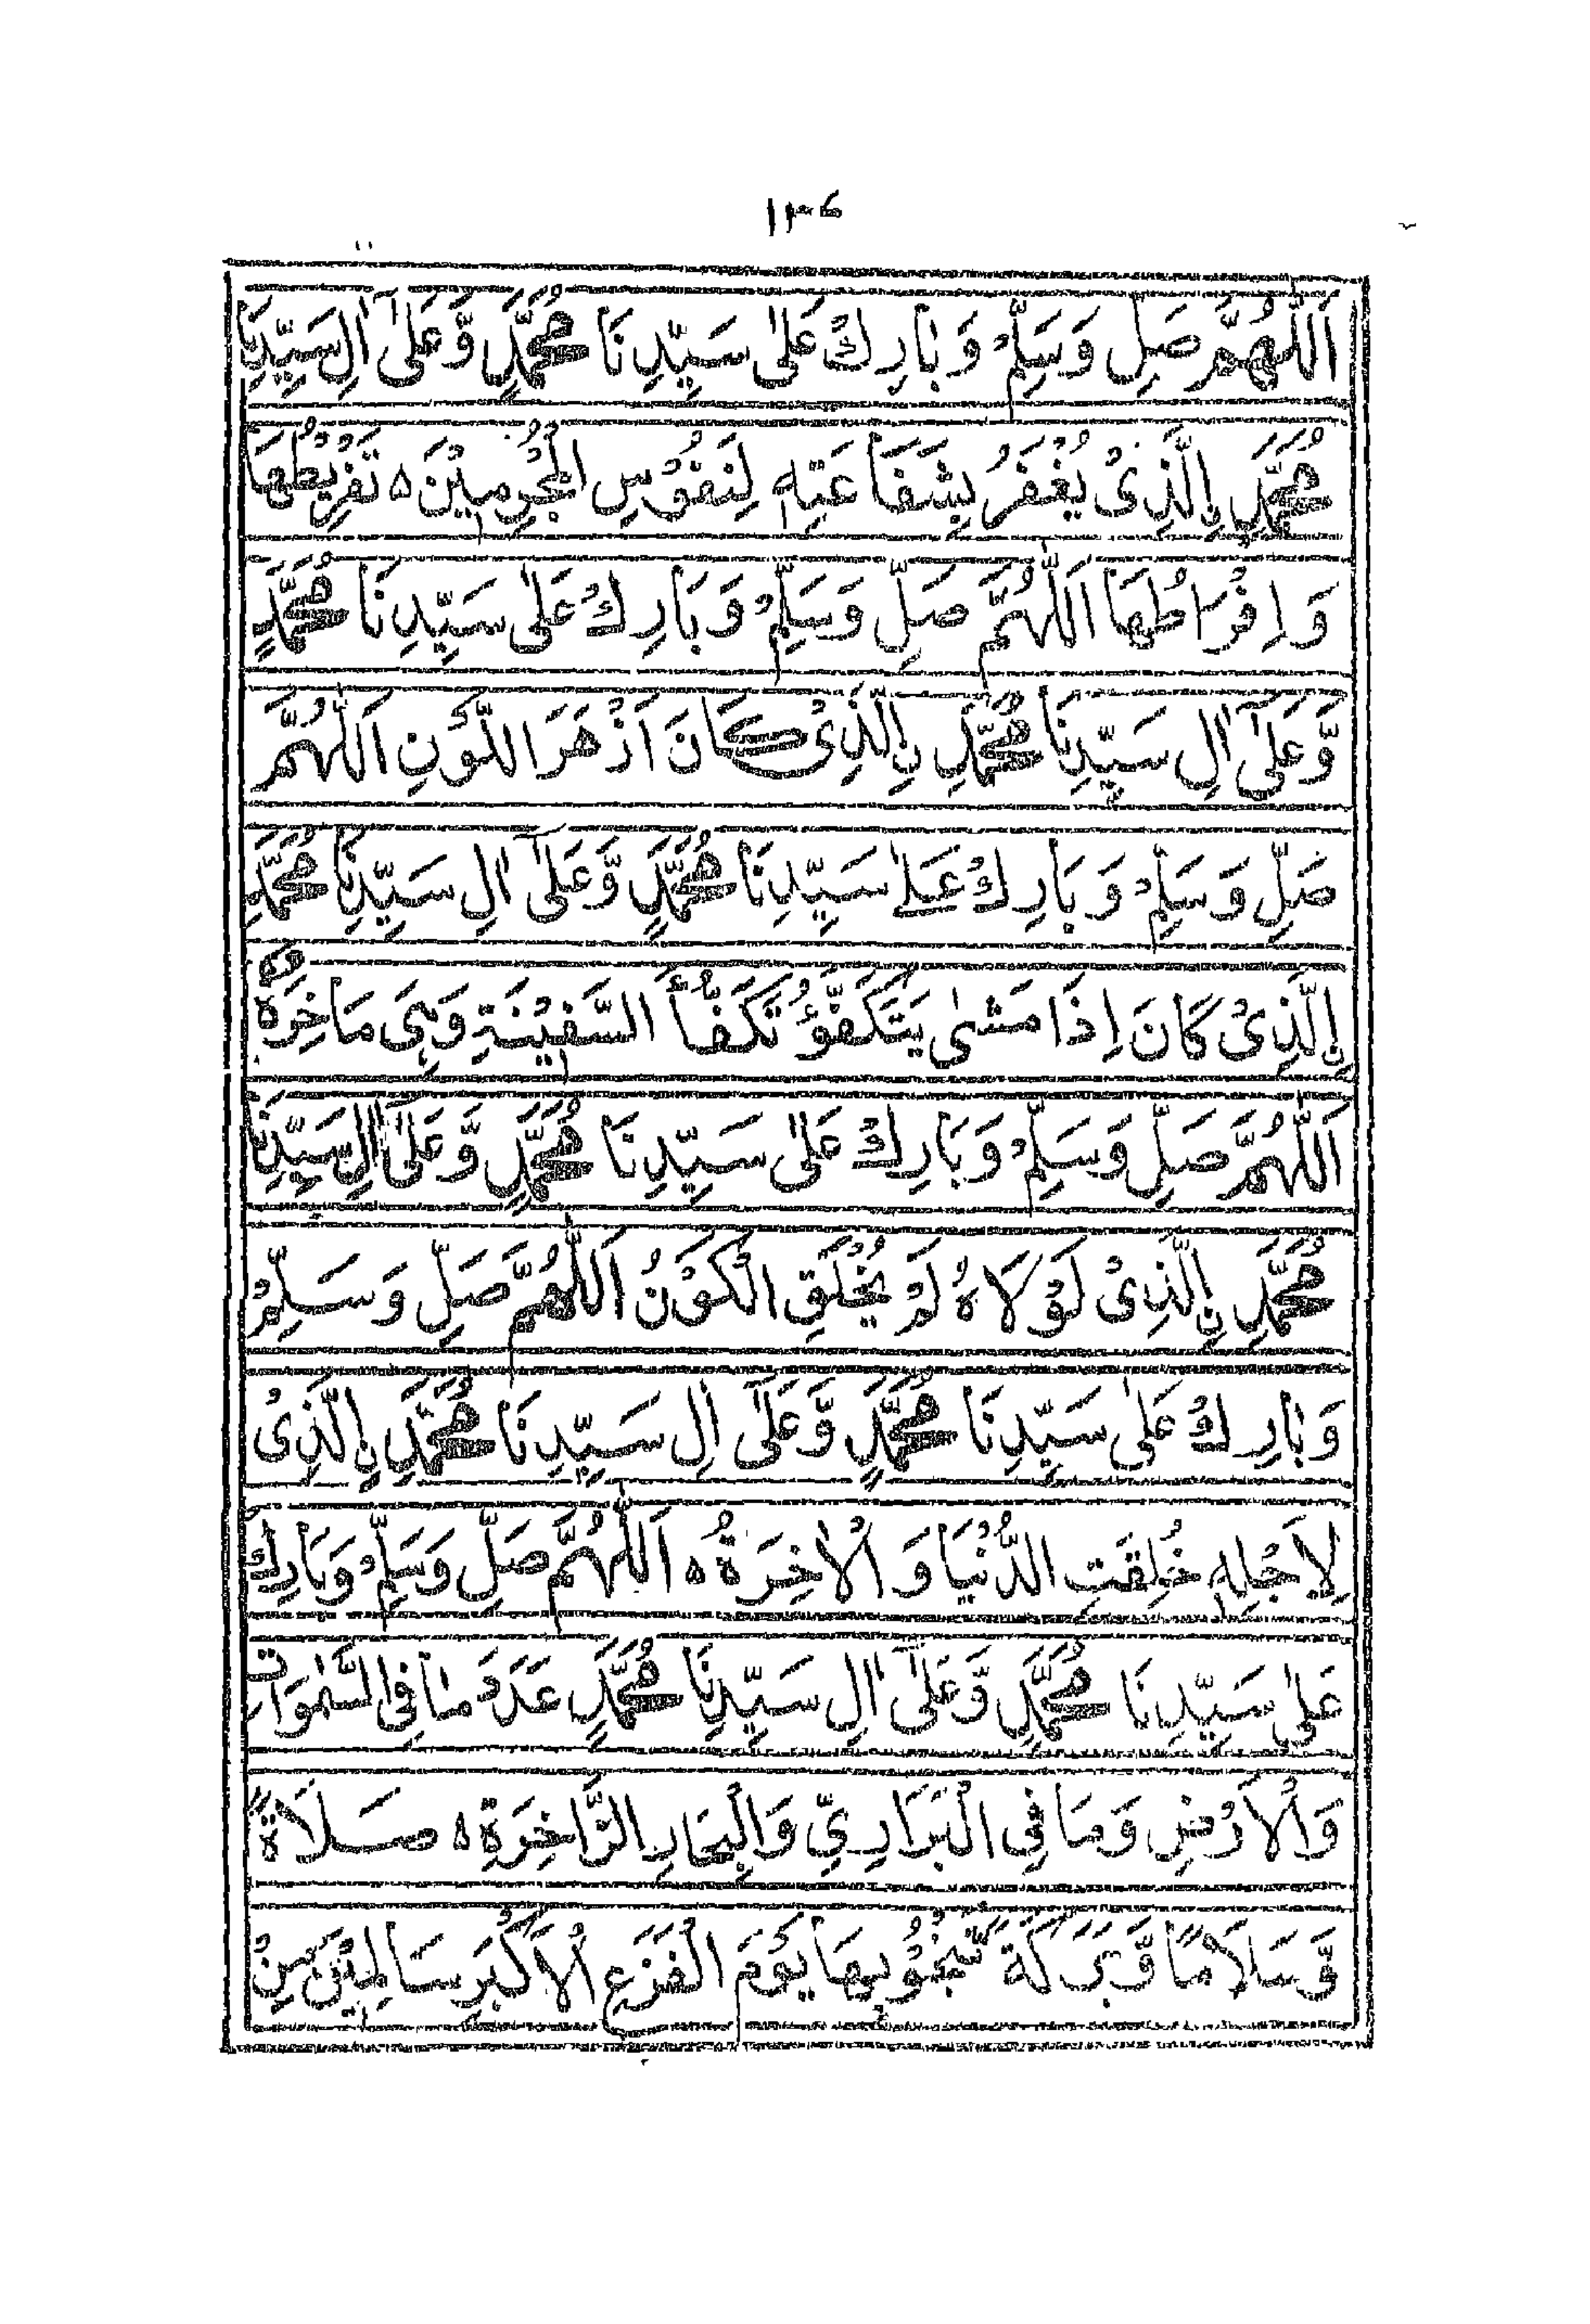 ١٣٤
اَللّٰهُمَّ صَلِّ وَسَلِّمْ وَبَارِكْ عَلٰى سَيِّدِنَا مُحَمَّدٍ وَّعَلٰٓى اٰلِ سَيِّدِنَا
مُحَمَّدِ نِ الَّذِىْ يُغْفَرُ بِشَفَاعَتِهٖ لِنُفُوْسِ الْمُجْرِمِيْنَ ه تَفْرِيْطُهَا
وَاِفْرَاطُهَا اَللّٰهُمَّ صَلِّ وَسَلِّمْ وَبَارِكْ عَلٰى سَيِّدِنَا مُحَمَّدٍ
وَّعَلٰٓى اٰلِ سَيِّدِنَا مُحَمَّدِ نِ الَّذِىْ كَانَ اَزْهَرَ اللَّوْنِ اَللّٰهُمَّ
صَلِّ وَسَلِّمْ وَبَارِكْ عَلٰى سَيِّدِنَا مُحَمَّدٍ وَّعَلٰٓى اٰلِ سَيِّدِنَا مُحَمَّدِ
نِ الَّذِىْ كَانَ اِذَا مَشٰى يَتَكَفَّؤُ تَكَفُّأَ السَّفِيْنَةِ وَهِىَ مَاخِرَةٌ
اَللّٰهُمَّ صَلِّ وَسَلِّمْ وَبَارِكْ عَلٰى سَيِّدِنَا مُحَمَّدٍ وَّعَلٰٓى اٰلِ سَيِّدِنَا
مُحَمَّدِ نِ الَّذِىْ لَوْلَاهُ لَمْ يُخْلَقِ الْكَوْنُ اَللّٰهُمَّ صَلِّ وَسَلِّمْ
وَبَارِكْ عَلٰى سَيِّدِنَا مُحَمَّدٍ وَّعَلٰٓى اٰلِ سَيِّدِنَا مُحَمَّدِ نِ الَّذِىْ
لِاَجْلِهٖ خُلِقَتِ الدُّنْيَا وَالْاٰخِرَةُ ه اَللّٰهُمَّ صَلِّ وَسَلِّمْ وَبَارِكْ
عَلٰى سَيِّدِنَا مُحَمَّدٍ وَّعَلٰٓى اٰلِ سَيِّدِنَا مُحَمَّدٍ عَدَدَ مَا فِى السَّمٰوَاتِ
وَالْاَرْضِ وَمَا فِى الْبَرَارِىِّ وَالْبِحَارِ الزَّاخِرَةِ ه صَلَاةً
وَّسَلَامًا وَّبَرَكَةً نَّنْجُوْ بِهَا يَوْمَ الْفَزَعِ الْاَكْبَرِ سَالِمِيْنَ مِنْ